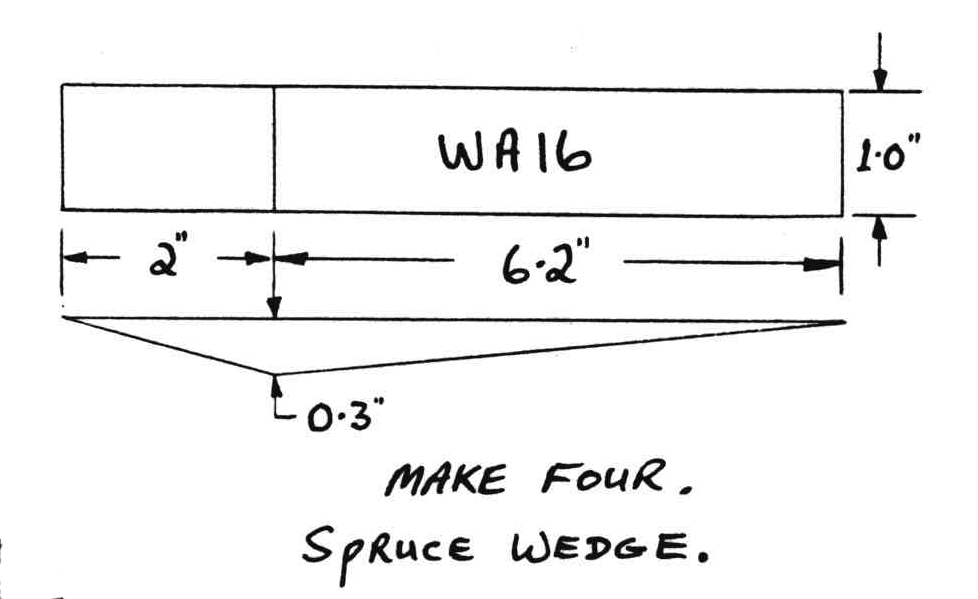 WA16
1.0"
2"
6.2"
0.3"
MAKE FOUR.
SPRUCE WEDGE.